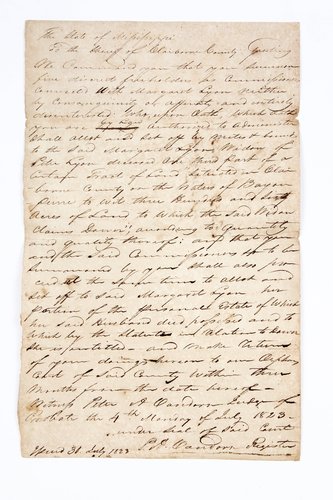 The State of Mississippi
To the Sheriff of Claiborne County Greeting
We Command you that you summon
five discreet freeholders as Commissioners
Connected With Margaret Lyon Neither
by Consanguinity or affinity and entirely
disinterested Who, upon Oath, Which
you are authorized to Administer
Shall allot and Set off by Metes & bounds
to the Said Margaret Lyon Widow of
Peter Lyon deceased One third part of a
Certain Tract of Land situated in Clai
borne County on the Waters of Bayou
pierre to wit three Hundred and Sixty
Acres of Land to Which the Said Widow
Claims Dower, according to Quantity
and quality thereof: and that you
and the Said Commissioners so to be
summoned by you Shall also pro
ceed at the Same time to allot and
Set off to Said Margaret Lyon her
portion of the personal Estate of Which
her Said Husband died possessed and to
Which by the Statute in Relation to dower
she is entitled and Make Return
of your doings herein to our Orphans
Court of Said County Within three
Months from the date hereof
Witness Peter A Vandorn Judge of
Probate the 4th Monday of July 1823
under Seal of Said Court
Issued 31 July 1823 P A Vandorn Register